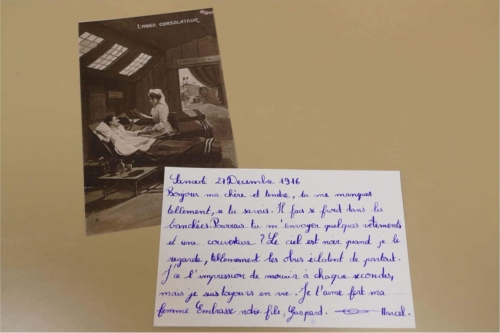 L'ANGE CONSOLATEUR
Samedi 21 Decembre 1916
Bonjour ma chère et tendre, tu me manques
tellement, si tu savais. Il fais si froid dans les
tranchées. Pourrais tu m'envoyer quelques vêtements
et une couverture ? Le ciel est noir quand je le
regarde, tellement les obus éclatent de partout.
J'ai l'impression de mourir à chaque secondes,
mais je suis toujours en vie. Je t'aime fort ma
femme Embrasse notre fils, Gaspard. Marcel.